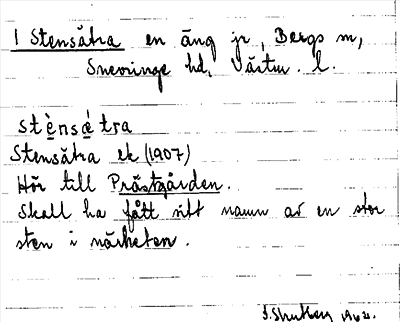 1 Stensätra en äng jr, Bergs sn,
Snevringe hd, Västm. l.
stènsètra
Stensätra ek (1907)
Hör till Prästgården.
Skall ha fått sitt namn av en stor
sten i närheten.